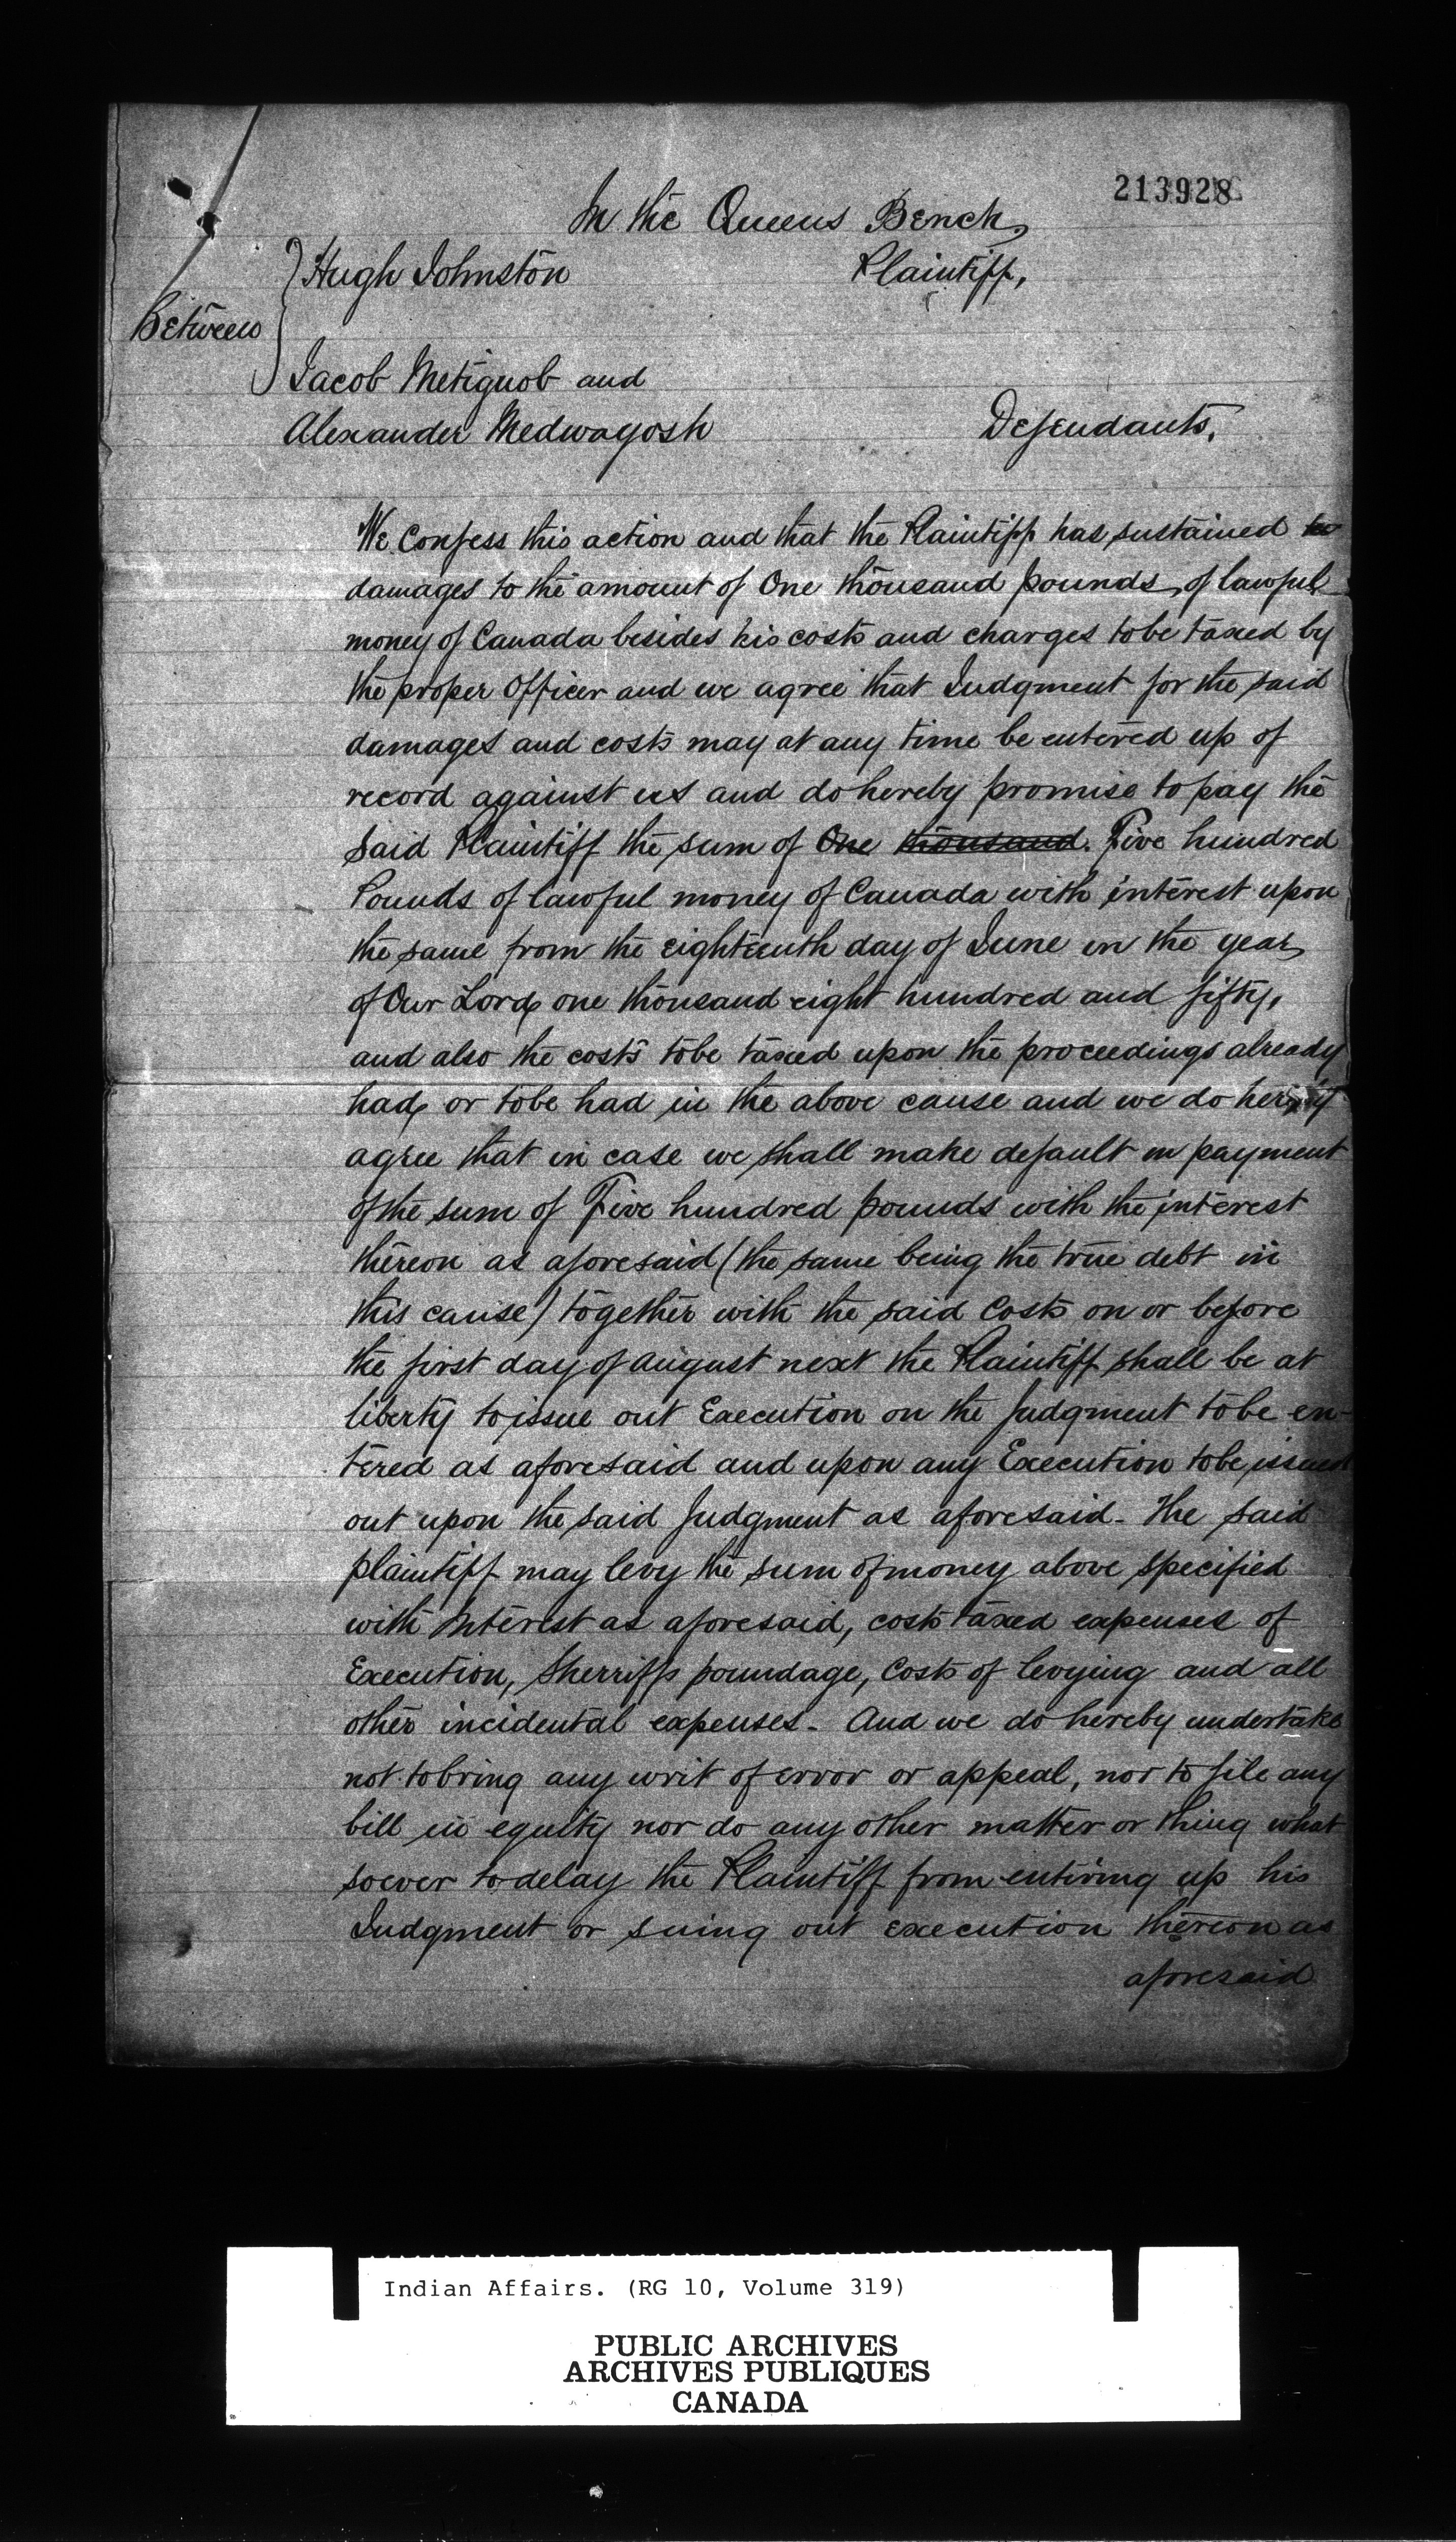 213928
In the Queens Bench,
Hugh Johnston Plaintiff,
Between
Jacob Metiguob and
Alexander Medwayosh Defendants.
We Confess this action and that the Plaintiff has sustained to
damages to the amount of One thousand pounds, of lawful
money of Canada besides his costs and charges tobe taxed by
the proper Officer and we agree that Judgment for the said
damages and costs may at any time be entered up of
record against us and do hereby promise to pay the
said Plaintiff the sum of One thousand. Five hundred
Pounds of lawful money of Canada with interest upon
the same from the eighteenth day of June in the year
of Our Lord, one thousand eight hundred and fifty,
and also the costs tobe taxed upon the proceedings already
had, or tobe had in the above cause and we do hereby
agree that in case we shall make default in payment
of the sum of Five hundred pounds with the interest
thereon as aforesaid (the same being the true debt in
this cause) together with the said Costs on or before
the first day of August next the Plaintiff shall be at
liberty to issue out Execution on the Judgment tobe en-
tered as aforesaid and upon any Execution tobe issued
out upon the said Judgment as aforesaid - The said
plaintiff may levy the sum of money above specified
with Interest as aforesaid, costs taxed expenses of
Execution, Sherriffs poundage, Costs of levying and all
other incidental expenses - And we do hereby undertake
not to bring any writ of error or appeal, nor to file any
bill in equity nor do any other matter or thing what
soever to delay the Plaintiff from entiring up his
Judgment or suing out execution thereon as
aforesaid
Indian Affairs. (RG 10, Volume 319)
PUBLIC ARCHIVES
ARCHIVES PUBLIQUES
CANADA